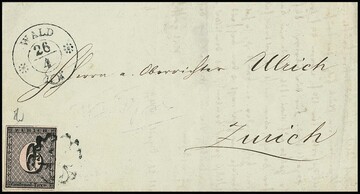 WALD
26
4
Herrn a. Oberrichter Ulrich
Zurich
ZURICH
6